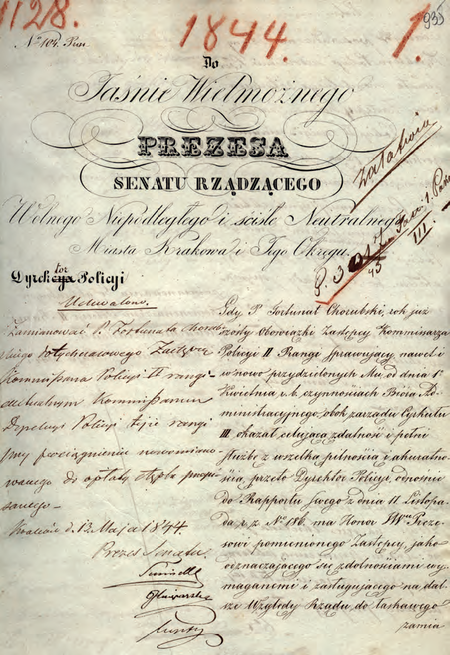 1128.
1844.
1.
935
No 104. Prez.
Do
Jaśnie Wielmożnego
PREZESA
SENATU RZĄDZĄCEGO
Wolnego Niepodległego i ściśle Neutralnego
Miasta Krakowa i Jego Okręgu.
III
Dyrektor Policyi
Uchwalono.
Zamianować P. Fortunata
dotychczasowego Zastępcę
Kommissarza Policyi II rangi
aktualnym Kommissarzem
Policyi tejże rangi
przy pociągnieniu
do opłaty stępla
Kraków d. 12 Maja 1844.
Prezes Senatu
Gdy P. Fortunat Chorubski, rok już
szósty Obowiązki Zastępcy Kommisarza
Policyi II Rangi sprawujący nawet i
w nowo przydzielonych Mu od dnia 1o
Kwietnia r. b. czynnościach Bióra Ad-
ministracyjnego, obok zarządu Cyrkułu
III okazał celującą zdatność i pełni
służbę z wszelką pilnością i akuratno-
ścią, przeto Dyrektor Policyi, odnośnie
do Rapportu swego z dnia 11 Listopa-
da r. z. No 186. ma Honor JWmu Preze-
sowi pomienionego Zastępcę, jako
odznaczającego się zdolnościami wy-
maganemi i zasługującego na dal-
sze Względy Rządu, do łaskawego
zamia